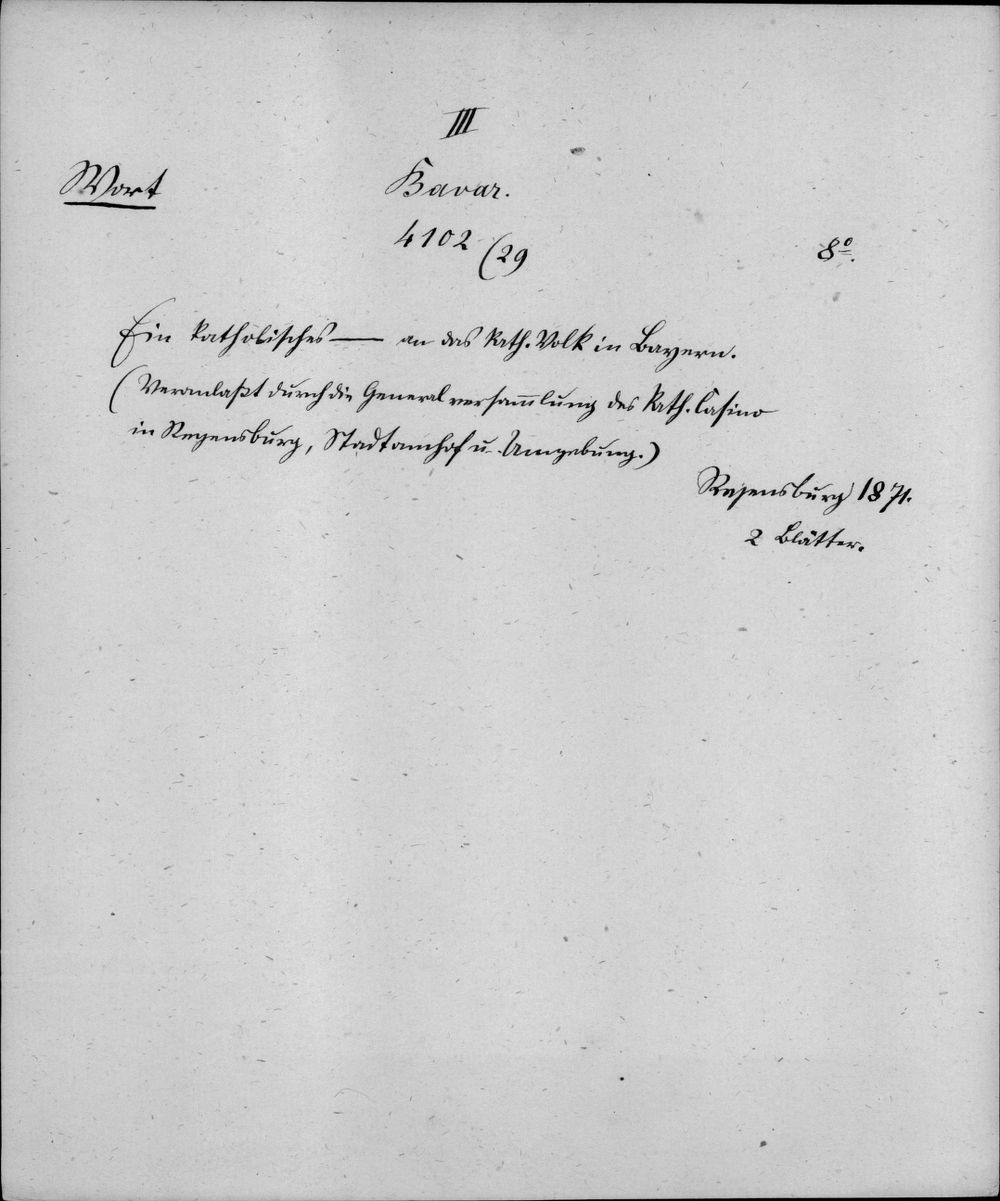 III
Wort
Bavar.
4102 (29
8º.
Ein katholisches — an das kath. Volk in Bayern.
(Veranlaßt durch die Generalversam̄lung des kath. Casino
in Regensburg, Stadtamhof u. Umgebung.)
Regensburg 1871.
2 Blätter.